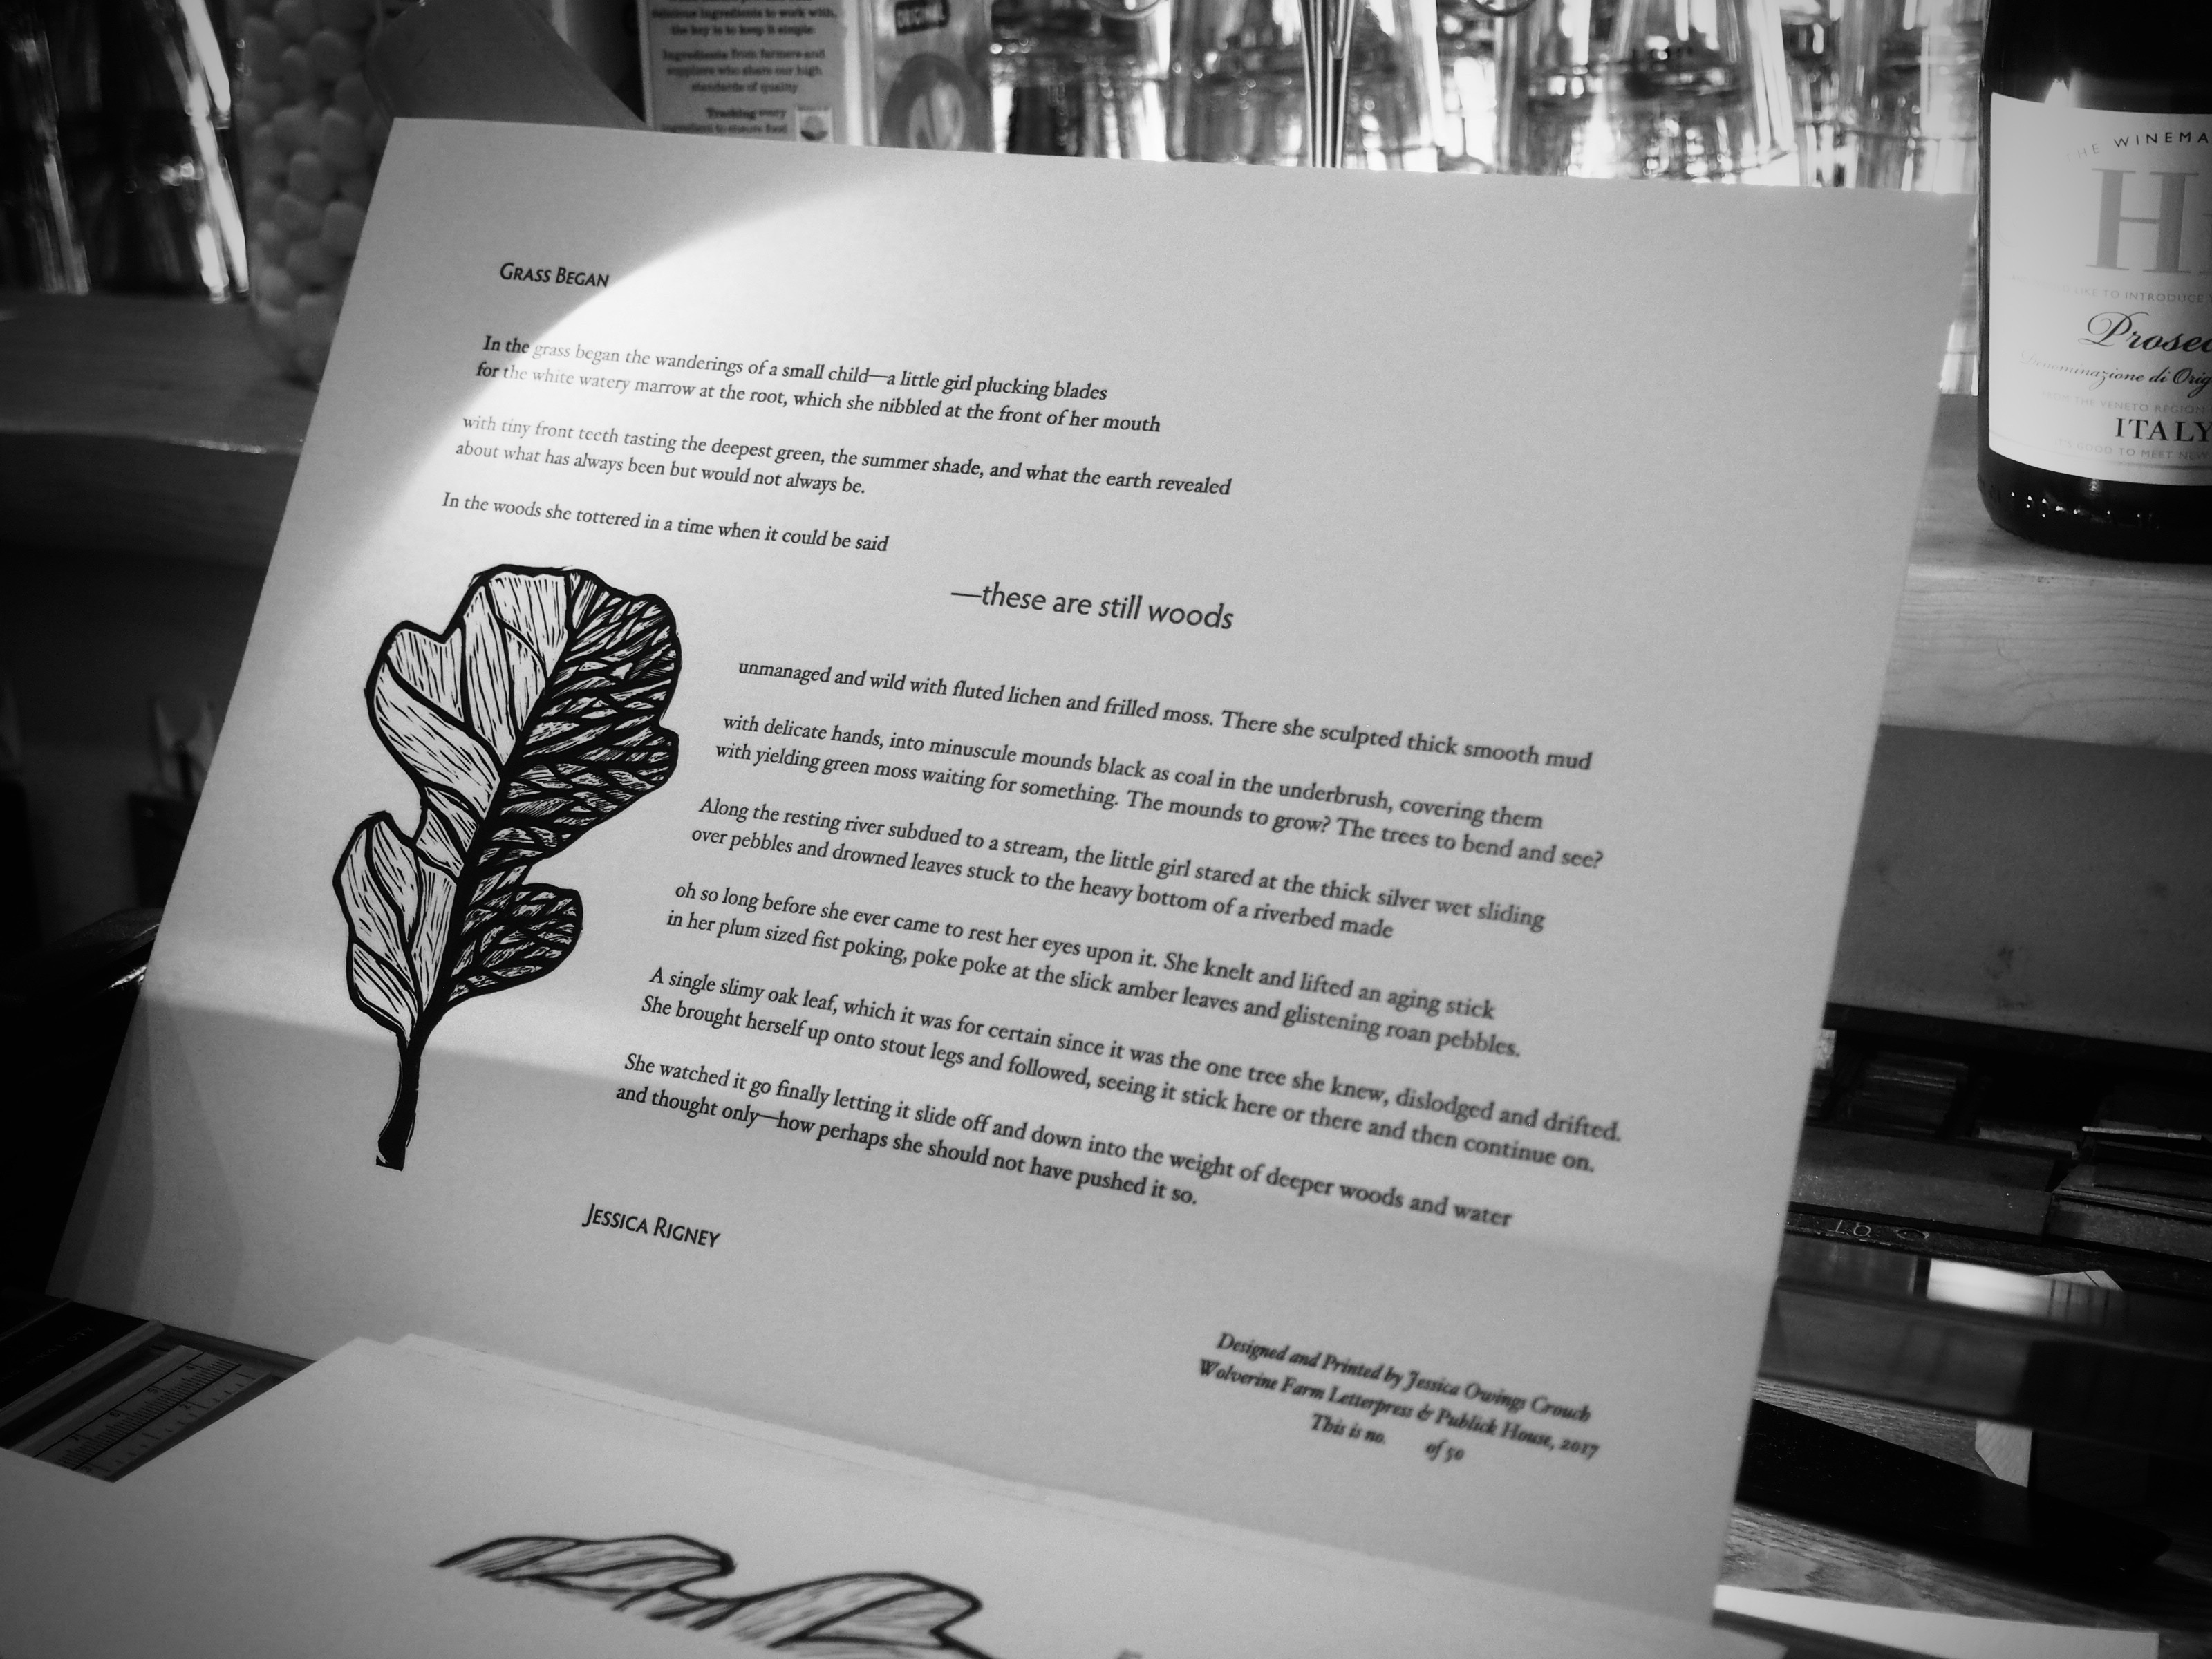 delicious ingredients to work with,
the key is to keep it simple
Ingredients from farmers and
suppliers who share our high
standards of quality
Tracking every
ingredient to ensure food
ORIGINAL
THE WINEMA
H
LIKE TO INTRODUCE
Prosec
Denominazione di Orig
FROM THE VENETO REGION
ITALY
GOOD TO MEET NEW
GRASS BEGAN
In the grass began the wanderings of a small child—a little girl plucking blades
for the white watery marrow at the root, which she nibbled at the front of her mouth
with tiny front teeth tasting the deepest green, the summer shade, and what the earth revealed
about what has always been but would not always be.
In the woods she tottered in a time when it could be said
—these are still woods
unmanaged and wild with fluted lichen and frilled moss. There she sculpted thick smooth mud
with delicate hands, into minuscule mounds black as coal in the underbrush, covering them
with yielding green moss waiting for something. The mounds to grow? The trees to bend and see?
Along the resting river subdued to a stream, the little girl stared at the thick silver wet sliding
over pebbles and drowned leaves stuck to the heavy bottom of a riverbed made
oh so long before she ever came to rest her eyes upon it. She knelt and lifted an aging stick
in her plum sized fist poking, poke poke at the slick amber leaves and glistening roan pebbles.
A single slimy oak leaf, which it was for certain since it was the one tree she knew, dislodged and drifted.
She brought herself up onto stout legs and followed, seeing it stick here or there and then continue on.
She watched it go finally letting it slide off and down into the weight of deeper woods and water
and thought only—how perhaps she should not have pushed it so.
JESSICA RIGNEY
Designed and Printed by Jessica Owings Crouch
Wolverine Farm Letterpress & Publick House, 2017
This is no. of 50